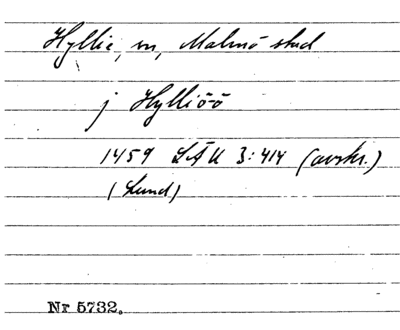 Hyllie, sn, Malmö stad
j Hylliöö
1459 LÄU 3:414 (avskr.)
(Lund)
Nr 5732.